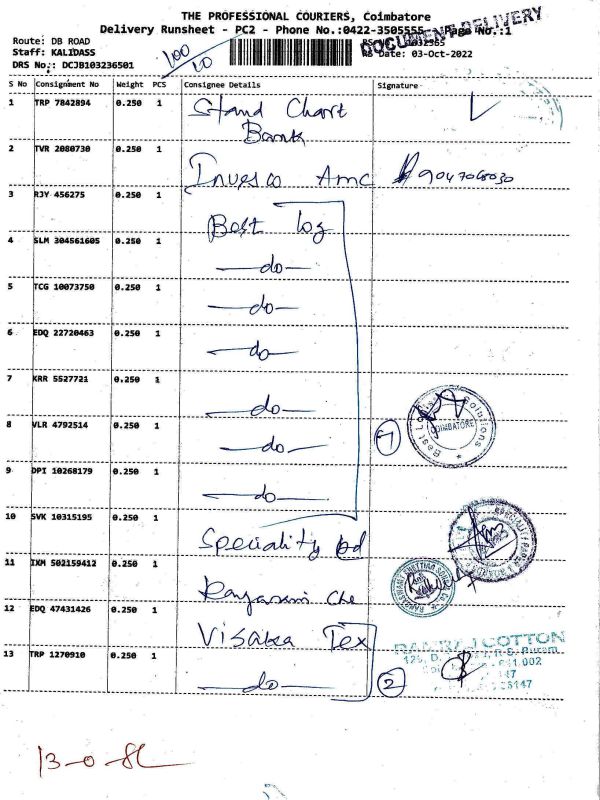 THE PROFESSIONAL COURIERS, Coimbatore
Delivery Runsheet - PC2 - Phone No.:0422-3505555 Page No.:1
DOCUMENT DELIVERY
Route: DB ROAD
Staff: KALIDASS
RS Date: 03-Oct-2022
DRS No.: DCJB103236501
100
10
S No Consignment No Weight PCS Consignee Details Signature
1 TRP 7842894 0.250 1 Stand Chart
Bank
2 TVR 2080730 0.250 1 Invesco Amc 9047068030
3 RJY 456275 0.250 1 Best log
4 SLM 304561605 0.250 1 —do—
5 TCG 10073750 0.250 1 —do—
6 EDQ 22720463 0.250 1 —do—
7 KRR 5527721 0.250 1 —do—
8 VLR 4792514 0.250 1 —do— 7
COIMBATORE
9 DPI 10268179 0.250 1 —do—
10 SVK 10315195 0.250 1 Speciality
11 IXM 502159412 0.250 1
12 EDQ 47431426 0.250 1 Visaka Tex
RAMRAJ COTTON
13 TRP 1270910 0.250 1 —do— 2
13-0-